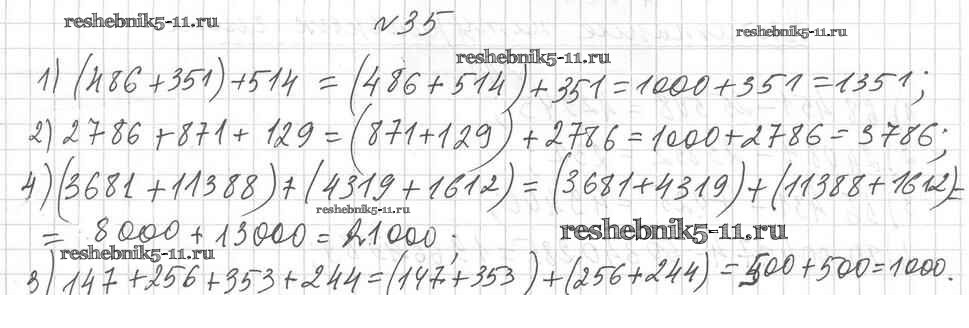 №35
reshebnik5-11.ru
reshebnik5-11.ru
reshebnik5-11.ru
1) (486+351)+514 = (486+514)+351=1000+351=1351;
2) 2786+871+129=(871+129)+2786=1000+2786=3786;
4) (3681+11388)+(4319+1612)=(3681+4319)+(11388+1612)=
reshebnik5-11.ru
= 8000+13000=21000;
reshebnik5-11.ru
reshebnik5-11.ru
3) 147+256+353+244=(147+353)+(256+244)=500+500=1000.